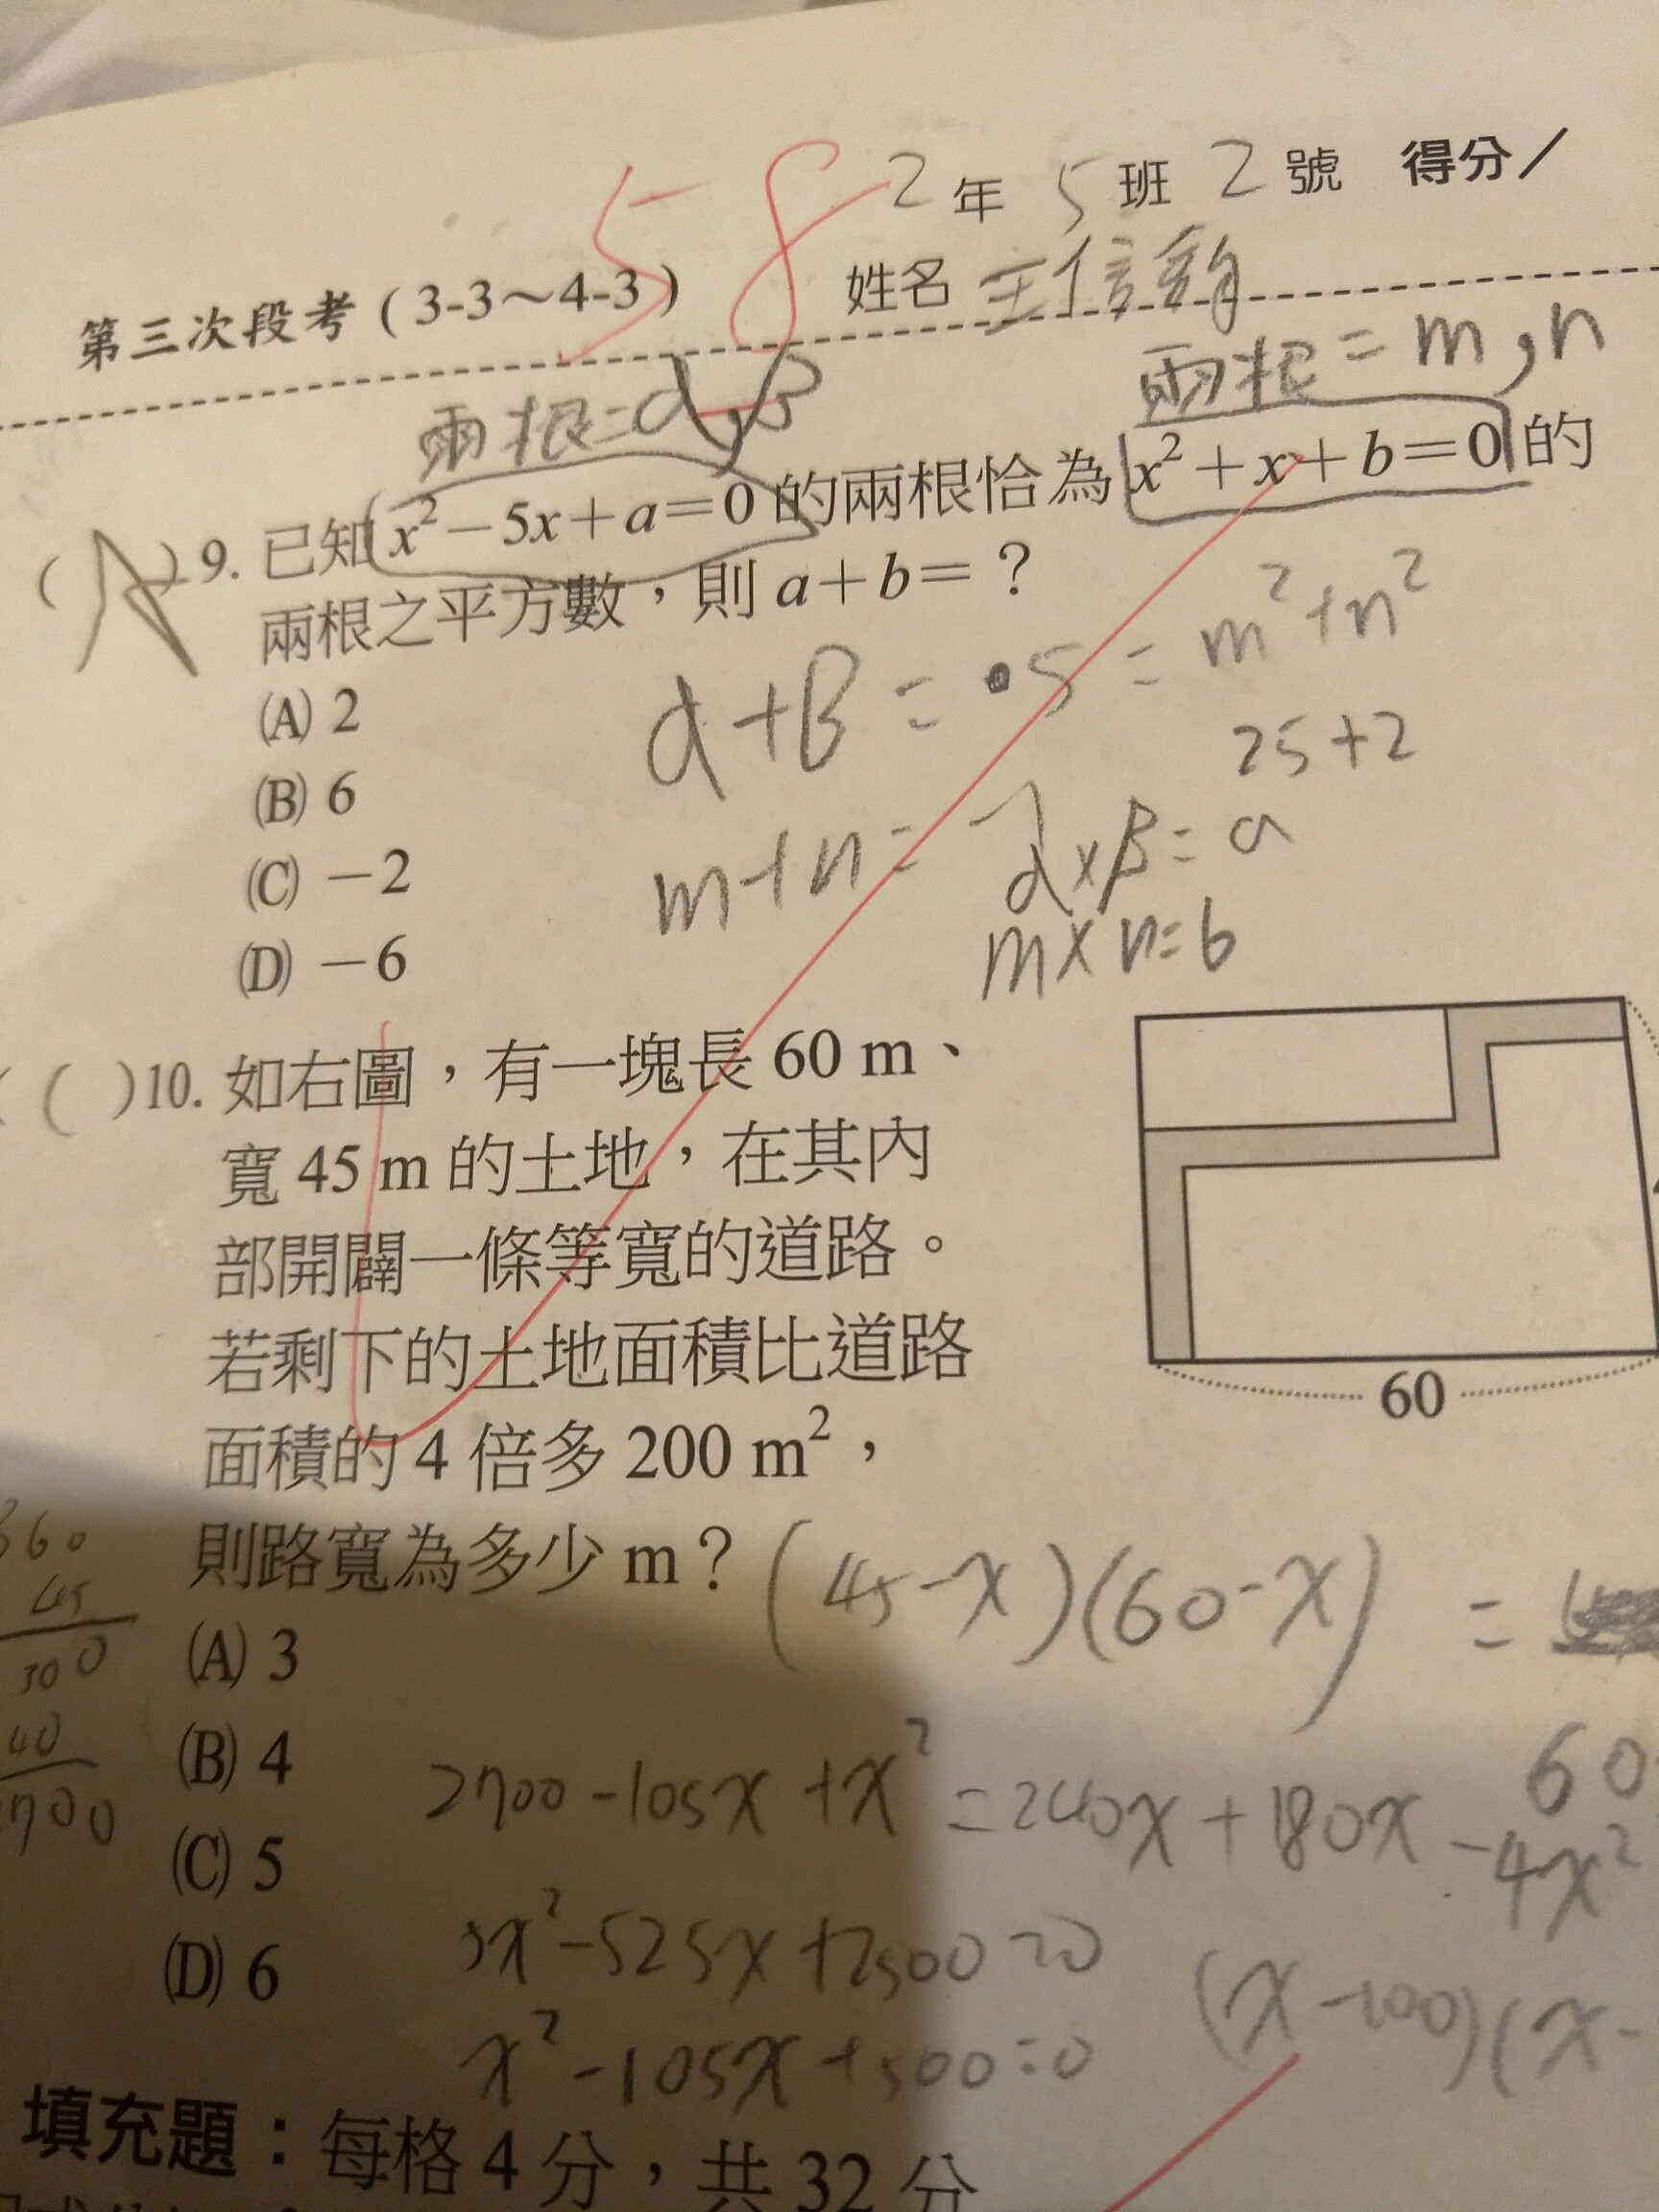 58
2年 5班 2號 得分/
第三次段考(3-3~4-3) 姓名 王信
兩根=α,β
兩根=m,n
(A)9. 已知x²-5x+a=0的兩根恰為x²+x+b=0的
兩根之平方數,則a+b=?
(A) 2
(B) 6
(C) -2
(D) -6
α+β=5=m²+n²
25+2
m+n=-1
α×β=a
m×n=b
( )10. 如右圖,有一塊長60 m、
寬45 m的土地,在其內
部開闢一條等寬的道路。
若剩下的土地面積比道路
面積的4倍多200 m²,
則路寬為多少m?
60
(A) 3
(B) 4
(C) 5
(D) 6
(45-x)(60-x) =
60
2700-105x+x²=240x+180x-4x²
5x²-525x+2500=0
x²-105x+500=0
(x-100)(x-
360
45
300
40
2700
填充題:每格4分,共32分